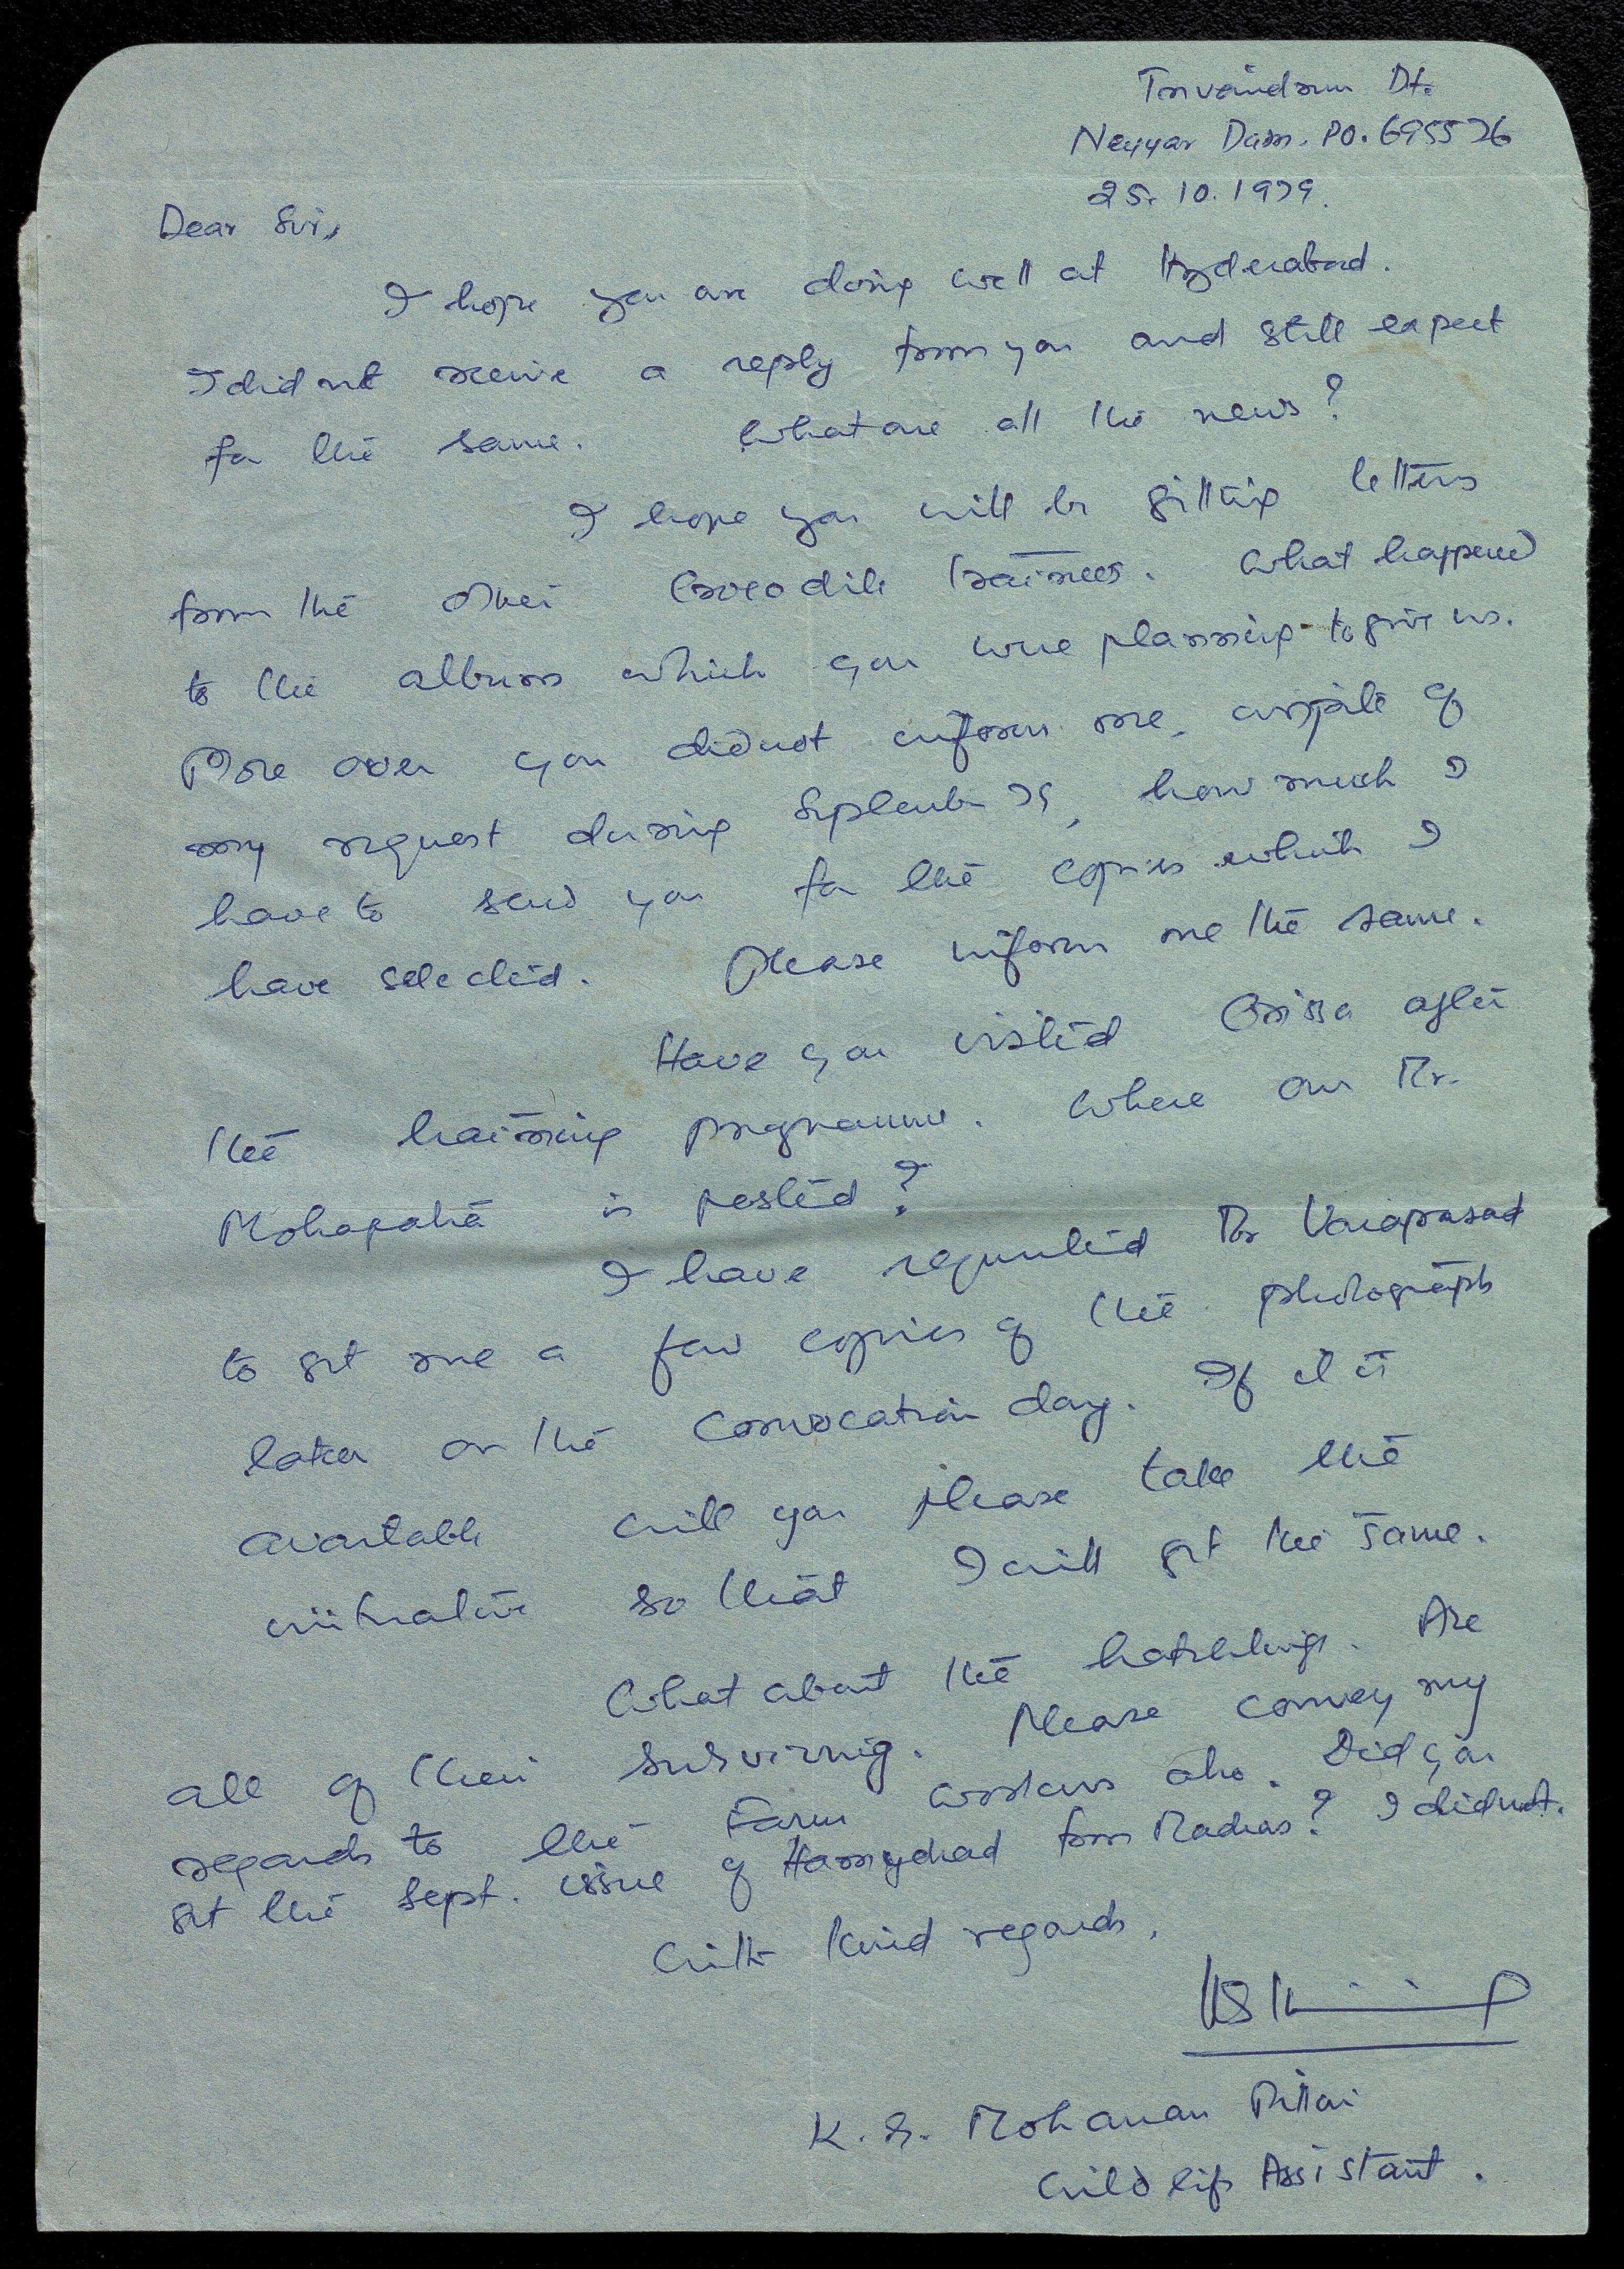 Trivandrum Dt.
Neyyar Dam. PO. 695576
25. 10. 1979.
Dear Sir,
I hope you are doing well at Hyderabad.
I did not receive a reply from you and still expect
for the same. What are all the news?
I hope you will be getting letters
from the other Crocodile trainees. What happened
to the album which you were planning to give us.
More over you did not inform me, inspite of
my request during September 79, how much I
have to send you for the copies which I
have selected. Please inform me the same.
Have you visited Orissa after
the training programme. Where our Mr.
Mohapatra is posted?
I have requested Mr Varaprasad
to get me a few copies of the photograph
taken on the Convocation day. If it is
available will you please take the
initiative so that I will get the same.
What about the hatchlings. Are
all of them surviving. Please convey my
regards to the Farm workers also. Did you
get the Sept. issue of Hamydrad from Madras? I did not.
With kind regards,
K. S. Mohanan Pillai
Wild life Assistant.